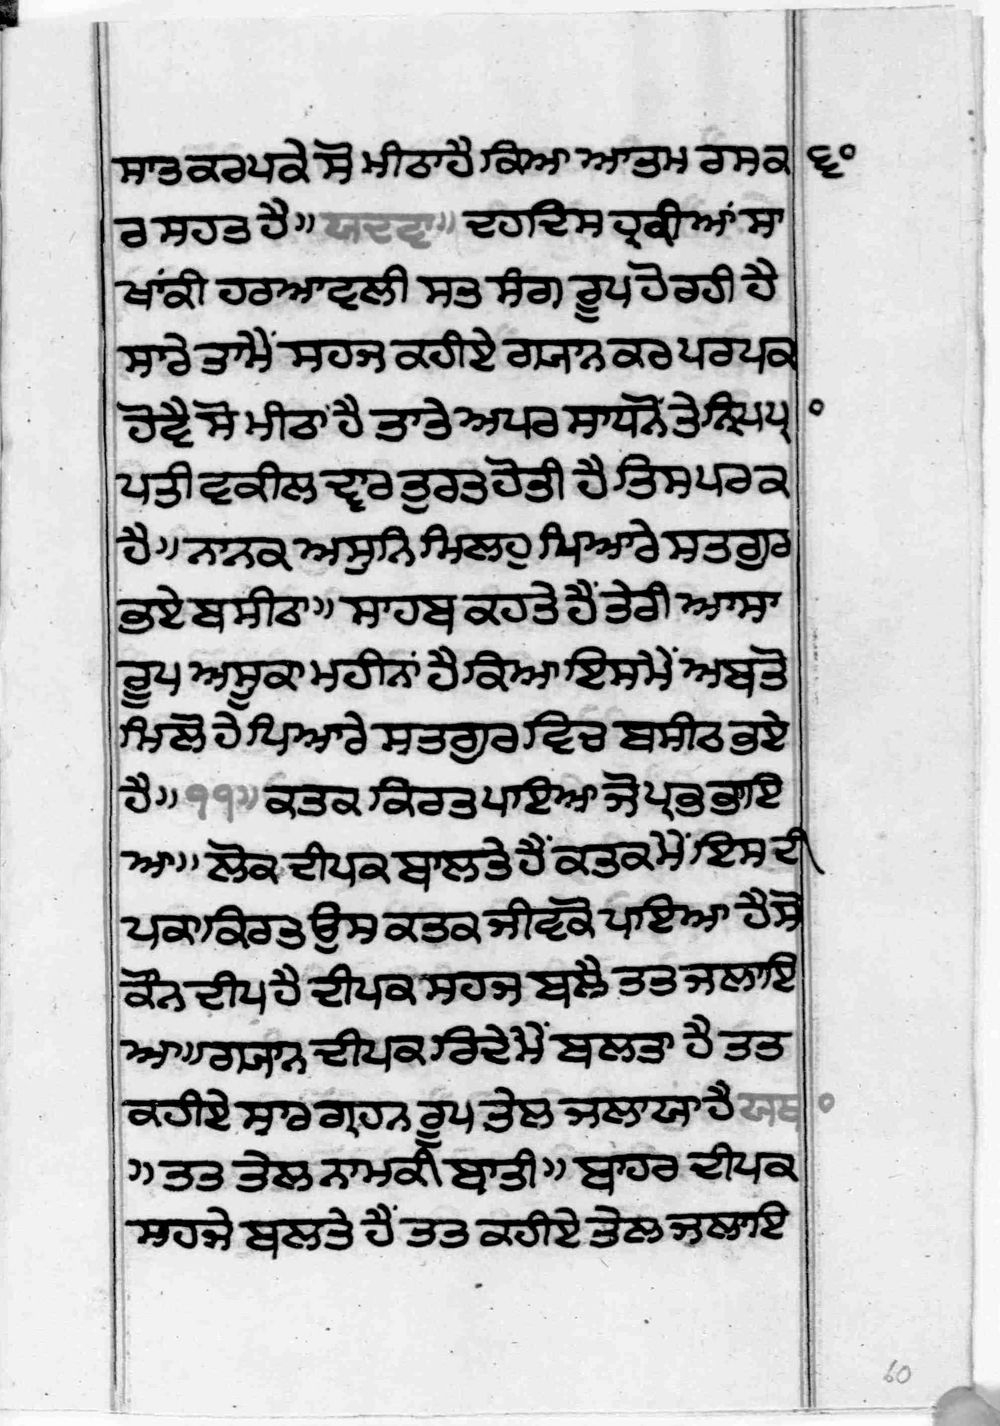 ਸਾਤ ਕਰ ਪਕੇ ਸੋ ਮੀਠਾ ਹੈ ਕਿਆ ਆਤਮ ਰਸ ਕ ੬੦
ਰ ਸਹਤ ਹੈ॥ ਯਦਵਾ॥ ਦਹਦਿਸ ਪ੍ਰਕੀ ਆਂ ਸਾ
ਖਾਂਕੀ ਹਰਆਵਲੀ ਸਤ ਸੰਗ ਰੂਪ ਹੋ ਰਹੀ ਹੈ
ਸਾਰੇ ਤਾਮੈਂ ਸਹਜ ਕਹੀਏ ਗਯਾਨ ਕਰ ਪਰਪਕ
ਹੋਵੈ ਸੋ ਮੀਠਾਂ ਹੈ ਤਾਤੇ ਅਪਰ ਸਾਧਨੋਂ ਤੇ
ਪਤੀ ਵਕੀਲ ਦ੍ਵਾਰ ਤੁਰਤ ਹੋਤੀ ਹੈ ਤਿਸ ਪਰ ਕ
ਹੈ॥ ਨਾਨਕ ਅਸੁਨਿ ਮਿਲਹੁ ਪਿਆਰੇ ਸਤਗੁਰ
ਭਏ ਬਸੀਠਾ॥ ਸਾਹਬ ਕਹਤੇ ਹੈਂ ਤੇਰੀ ਆਸਾ
ਰੂਪ ਅਸੂਕਾ ਮਹੀਨਾਂ ਹੈ ਕਿਆ ਇਸਮੇਂ ਅਬ ਤੋ
ਮਿਲੋ ਹੇ ਪਿਆਰੇ ਸਤਗੁਰ ਵਿਚ ਬਸੀਠ ਭਏ
ਹੈ॥੧੧॥ ਕਤਕ ਕਿਰਤ ਪਾਇਆ ਜੋ ਪ੍ਰਭ ਭਾਇ
ਆ॥ ਲੋਕ ਦੀਪਕ ਬਾਲਤੇ ਹੈਂ ਕਤਕਮੇਂ ਇਸ ਦੀ
ਪਕਾ ਕਿਰਤ ਉਸ ਕਤਕ ਜੀਵਕੋ ਪਾਇਆ ਹੈ ਸੋ
ਕੌਨ ਦੀਪ ਹੈ ਦੀਪਕ ਸਹਜ ਬਲੈ ਤਤ ਜਲਾਇ
ਆ॥ ਗਯਾਨ ਦੀਪਕ ਰਿਦੇਮੇਂ ਬਲਤਾ ਹੈ ਤਤ
ਕਹੀਏ ਸਾਰ ਗ੍ਰਹਨ ਰੂਪ ਤੇਲ ਜਲਾਯਾ ਹੈ ਯਥ
॥ ਤਤ ਤੇਲ ਨਾਮਕੀ ਬਾਤੀ॥ ਬਾਹਰ ਦੀਪਕ
ਸਹਜੇ ਬਲਤੇ ਹੈਂ ਤਤ ਕਹੀਏ ਤੇਲ ਜਲਾਇ
60